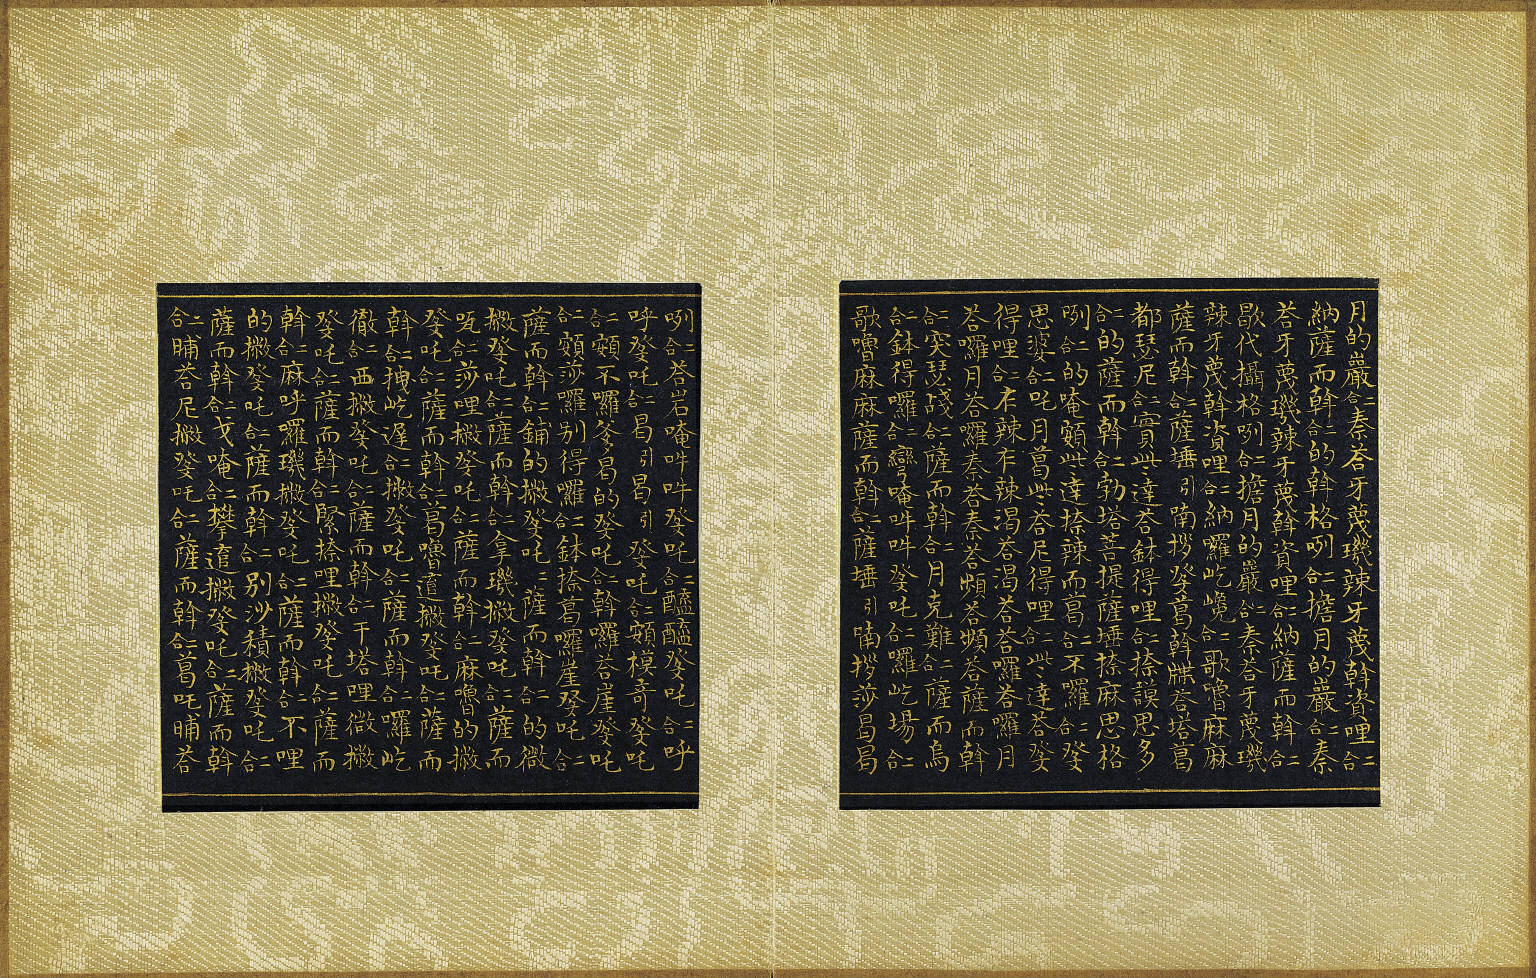 月的嚴二合秦荅牙蔑璣辣牙蔑斡資哩二合
納薩而斡二合的斡格咧二合擔月的嚴二合秦
荅牙蔑璣辣牙蔑斡資哩二合納薩而斡二合
歇代攝格咧二合擔月的嚴二合秦荅牙蔑璣
辣牙蔑斡資哩二合納囉屹嶐二合歌嚕麻麻
薩而斡二合薩埵引喃拶癹葛斡麒荅塔葛
都瑟尼二合實些達荅鉢得哩二合捺謨思多
二合的薩而斡二合勃塔菩提薩埵捺麻思格
咧二合的唵頞些達捺辣而葛二合不囉二合癹
思婆二合吒月葛些荅尼得哩二合些達荅癹
得哩二合辣辣渴荅渴荅荅囉荅囉月
荅囉月荅囉秦荅秦荅頻荅頻荅薩而斡
二合突瑟戔二合薩而斡二合月克難二合薩而烏
二合鉢得囉二合巒唵吽吽癹吒二合囉屹場二合
歌嚕麻麻薩而斡二合薩埵引喃拶莎曷曷
咧二合荅岩唵吽吽癹吒二合醯醯癹吒二合呼
呼癹吒二合曷引曷引癹吒二合頞模哥癹吒
二合頞不囉爹曷的癹吒二合斡囉荅崖癹吒
二合頞莎囉別得囉二合鉢捺葛囉崖癹吒二合
薩而斡二合鋪的撒癹吒二合薩而斡二合的微
撒癹吒二合薩而斡二合拿璣撒癹吒二合薩而
二合莎哩撒癹吒二合薩而斡二合麻嚕的撒
癹吒二合薩而斡二合葛嚕遣撒癹吒二合薩而
斡二合拽屹遲二合撒癹吒二合薩而斡二合囉屹
徹二合西撒癹吒二合薩而斡二合干塔哩微撒
癹吒二合薩而斡二合緊捺哩撒癹吒二合薩而
斡二合麻呼囉璣撒癹吒二合薩而斡二合不哩
的撒癹吒二合薩而斡二合別沙積撒癹吒二合
薩而斡二合戈唵二合攀遣撒癹吒二合薩而斡
二合晡荅尼撒癹吒二合薩而斡二合葛吒晡荅